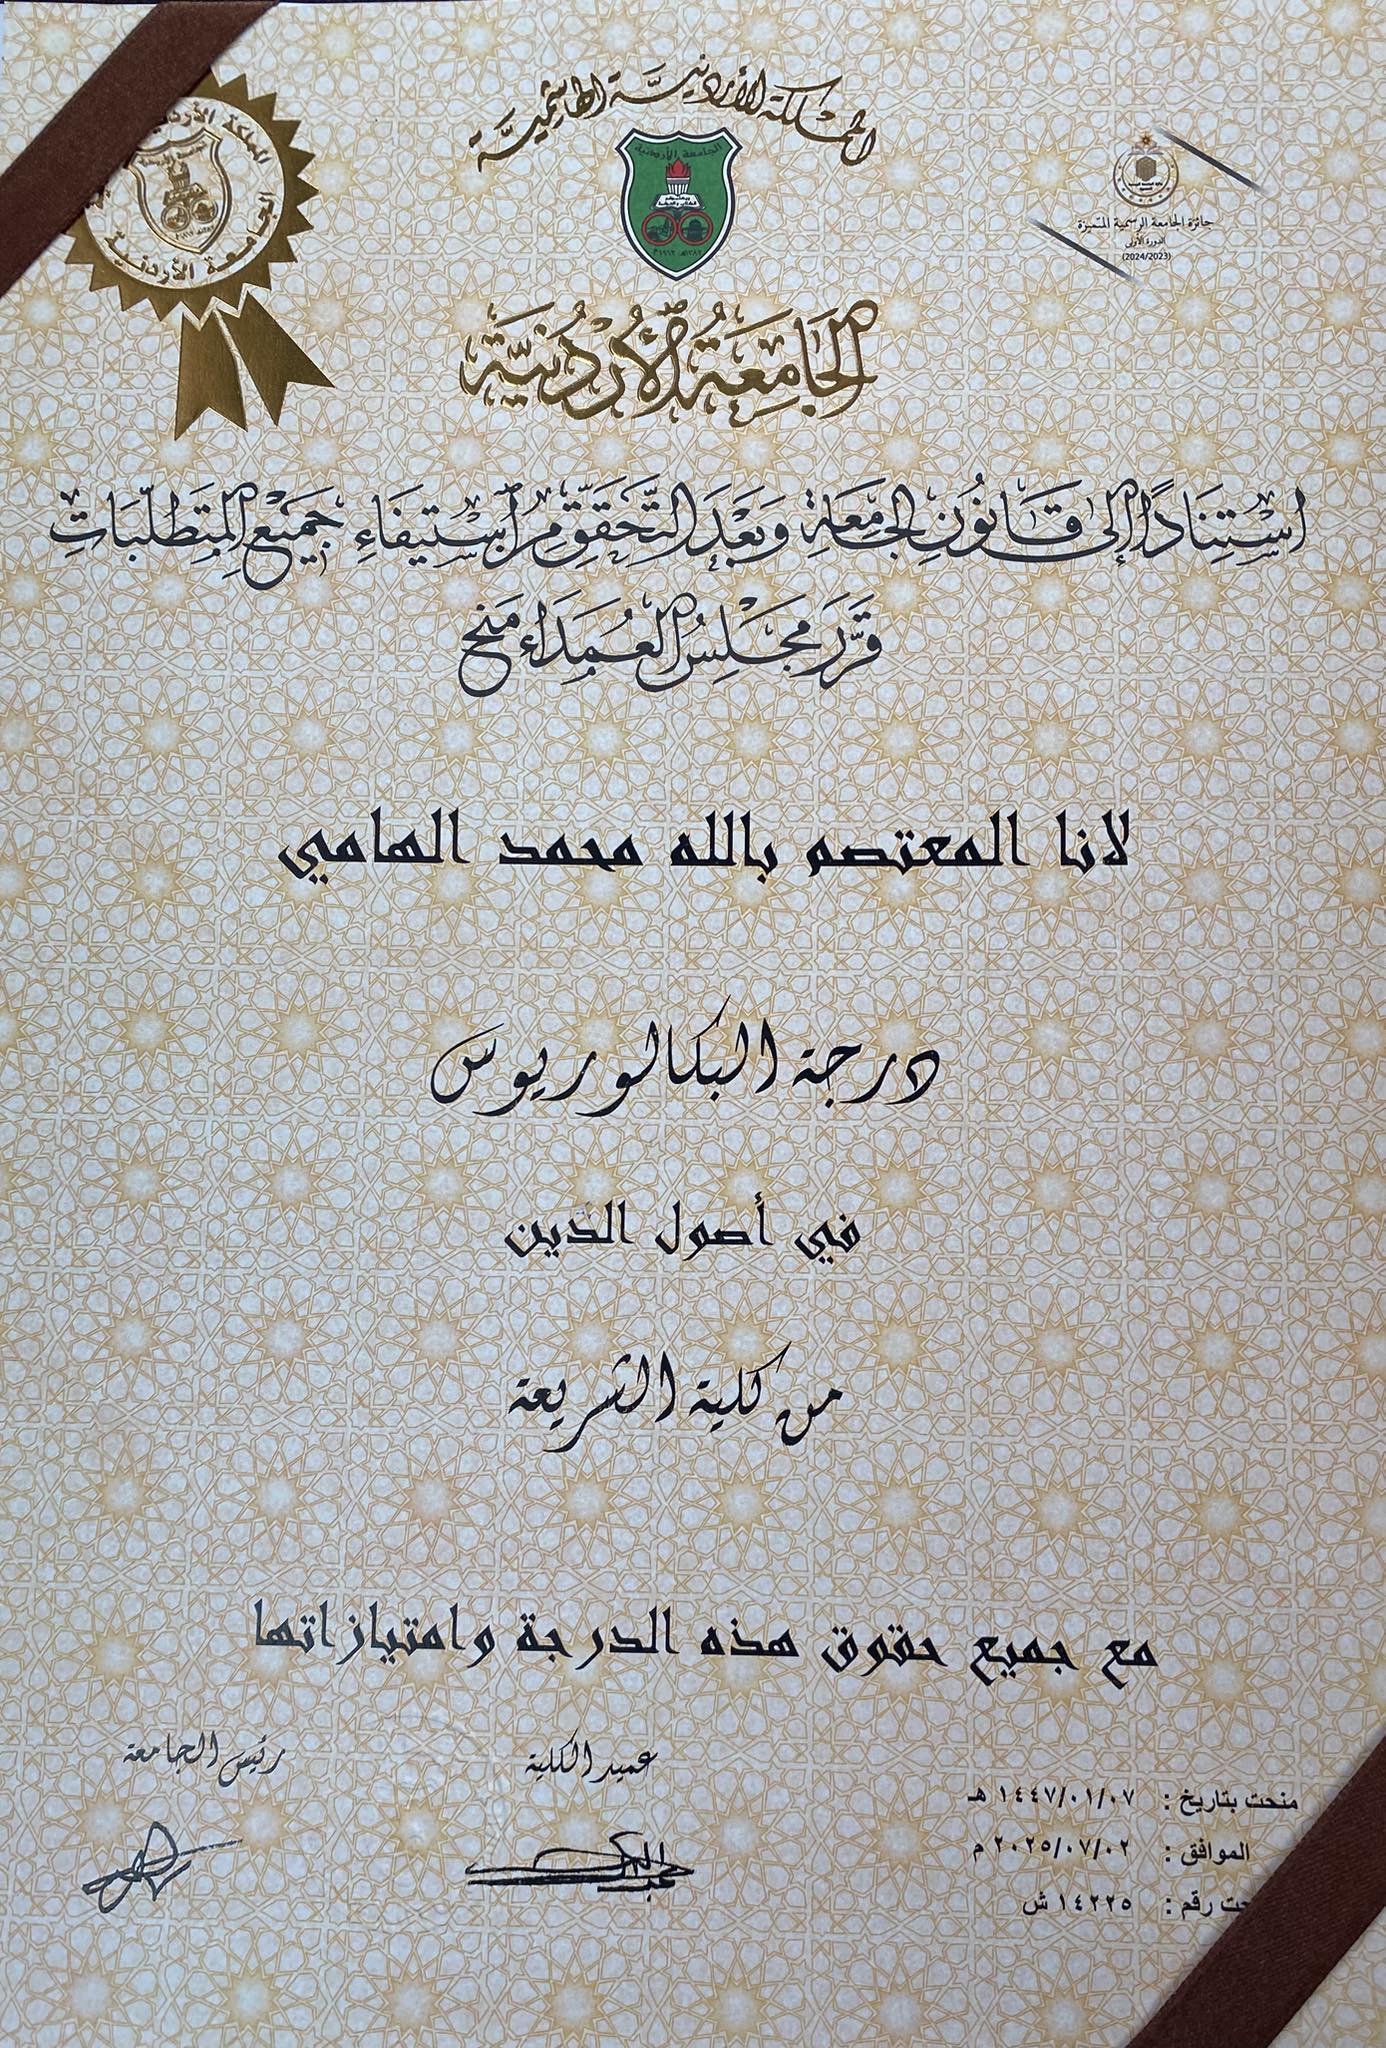 المملكة الأردنية الهاشمية
الجامعة الأردنية
١٩٦٢م
١٣٨٢هـ
جائزة الجامعة الرسمية المتميزة
الدورة الأولى
(2024/2023)
المملكة الأردنية
الجامعة الأردنية
الجَامِعَةُ الأُرْدُنِيَّة
اسْتِنَادًا إِلى قَانُونِ الجَامِعَةِ وَبَعْدَ التَّحَقُّقِ مِنِ اسْتِيفَاءِ جَمِيْعِ المُتَطَلَّبَاتِ
قَرَّرَ مَجْلِسُ العُمَدَاءِ مَنحَ
لانا المعتصم بالله محمد الهامي
درجة البكالوريوس
في أصول الدين
من كلية الشريعة
مع جميع حقوق هذه الدرجة وامتيازاتها
رئيس الجامعة
عميد الكلية
منحت بتاريخ : ١٤٤٧/٠١/٠٧ هـ
الموافق : ٢٠٢٥/٠٧/٠٢ م
حت رقم : ١٤٢٢٥ ش